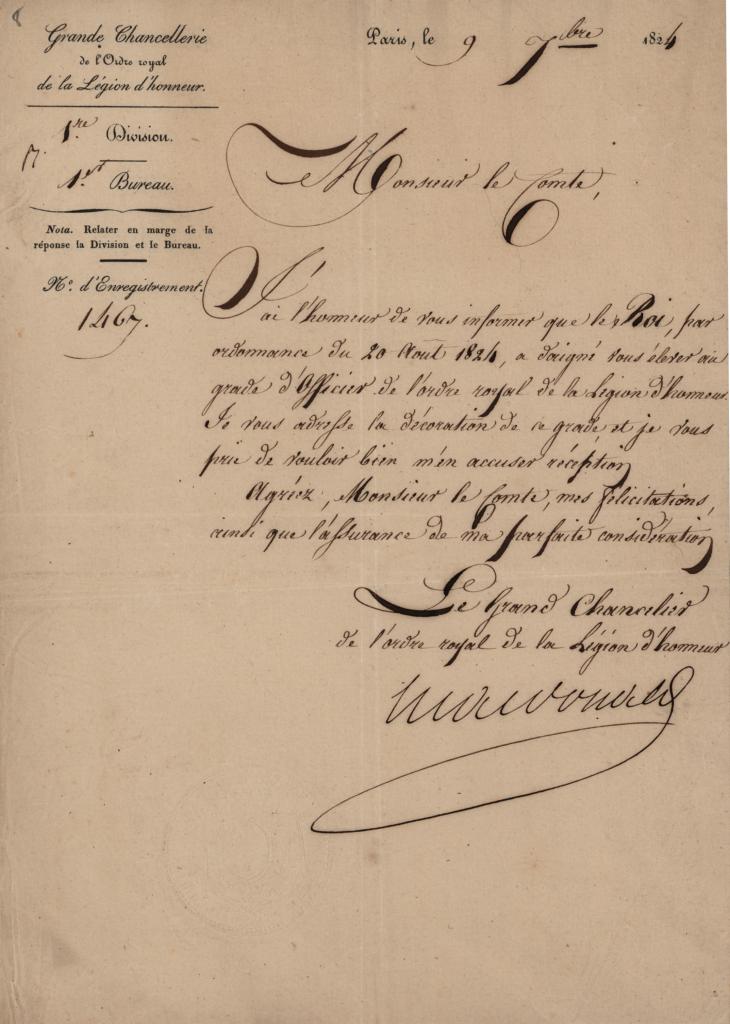 8
Grande Chancellerie
de l'Ordre royal
de la Légion d'honneur.
Paris, le 9 7bre 1824
1.re Division.
1.er Bureau.
Nota. Relater en marge de la
réponse la Division et le Bureau.
N.o d'Enregistrement.
1467.
Monsieur le Comte,
J'ai l'honneur de vous informer que le Roi, par
ordonnance du 20 Aout 1824, a daigné vous élever au
grade d'Officier de l'ordre royal de la Légion d'honneur.
Je vous adresse la décoration de ce grade, et je vous
prie de vouloir bien m'en accuser réception
Agréez, Monsieur le Comte, mes félicitations,
ainsi que l'assurance de ma parfaite considération
Le Grand Chancelier
de l'ordre royal de la Légion d'honneur
Macdonald